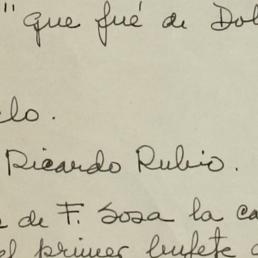 " que fué de Dol
lo.
Ricardo Rubio.
de F. Sosa la ca
el primer bufete